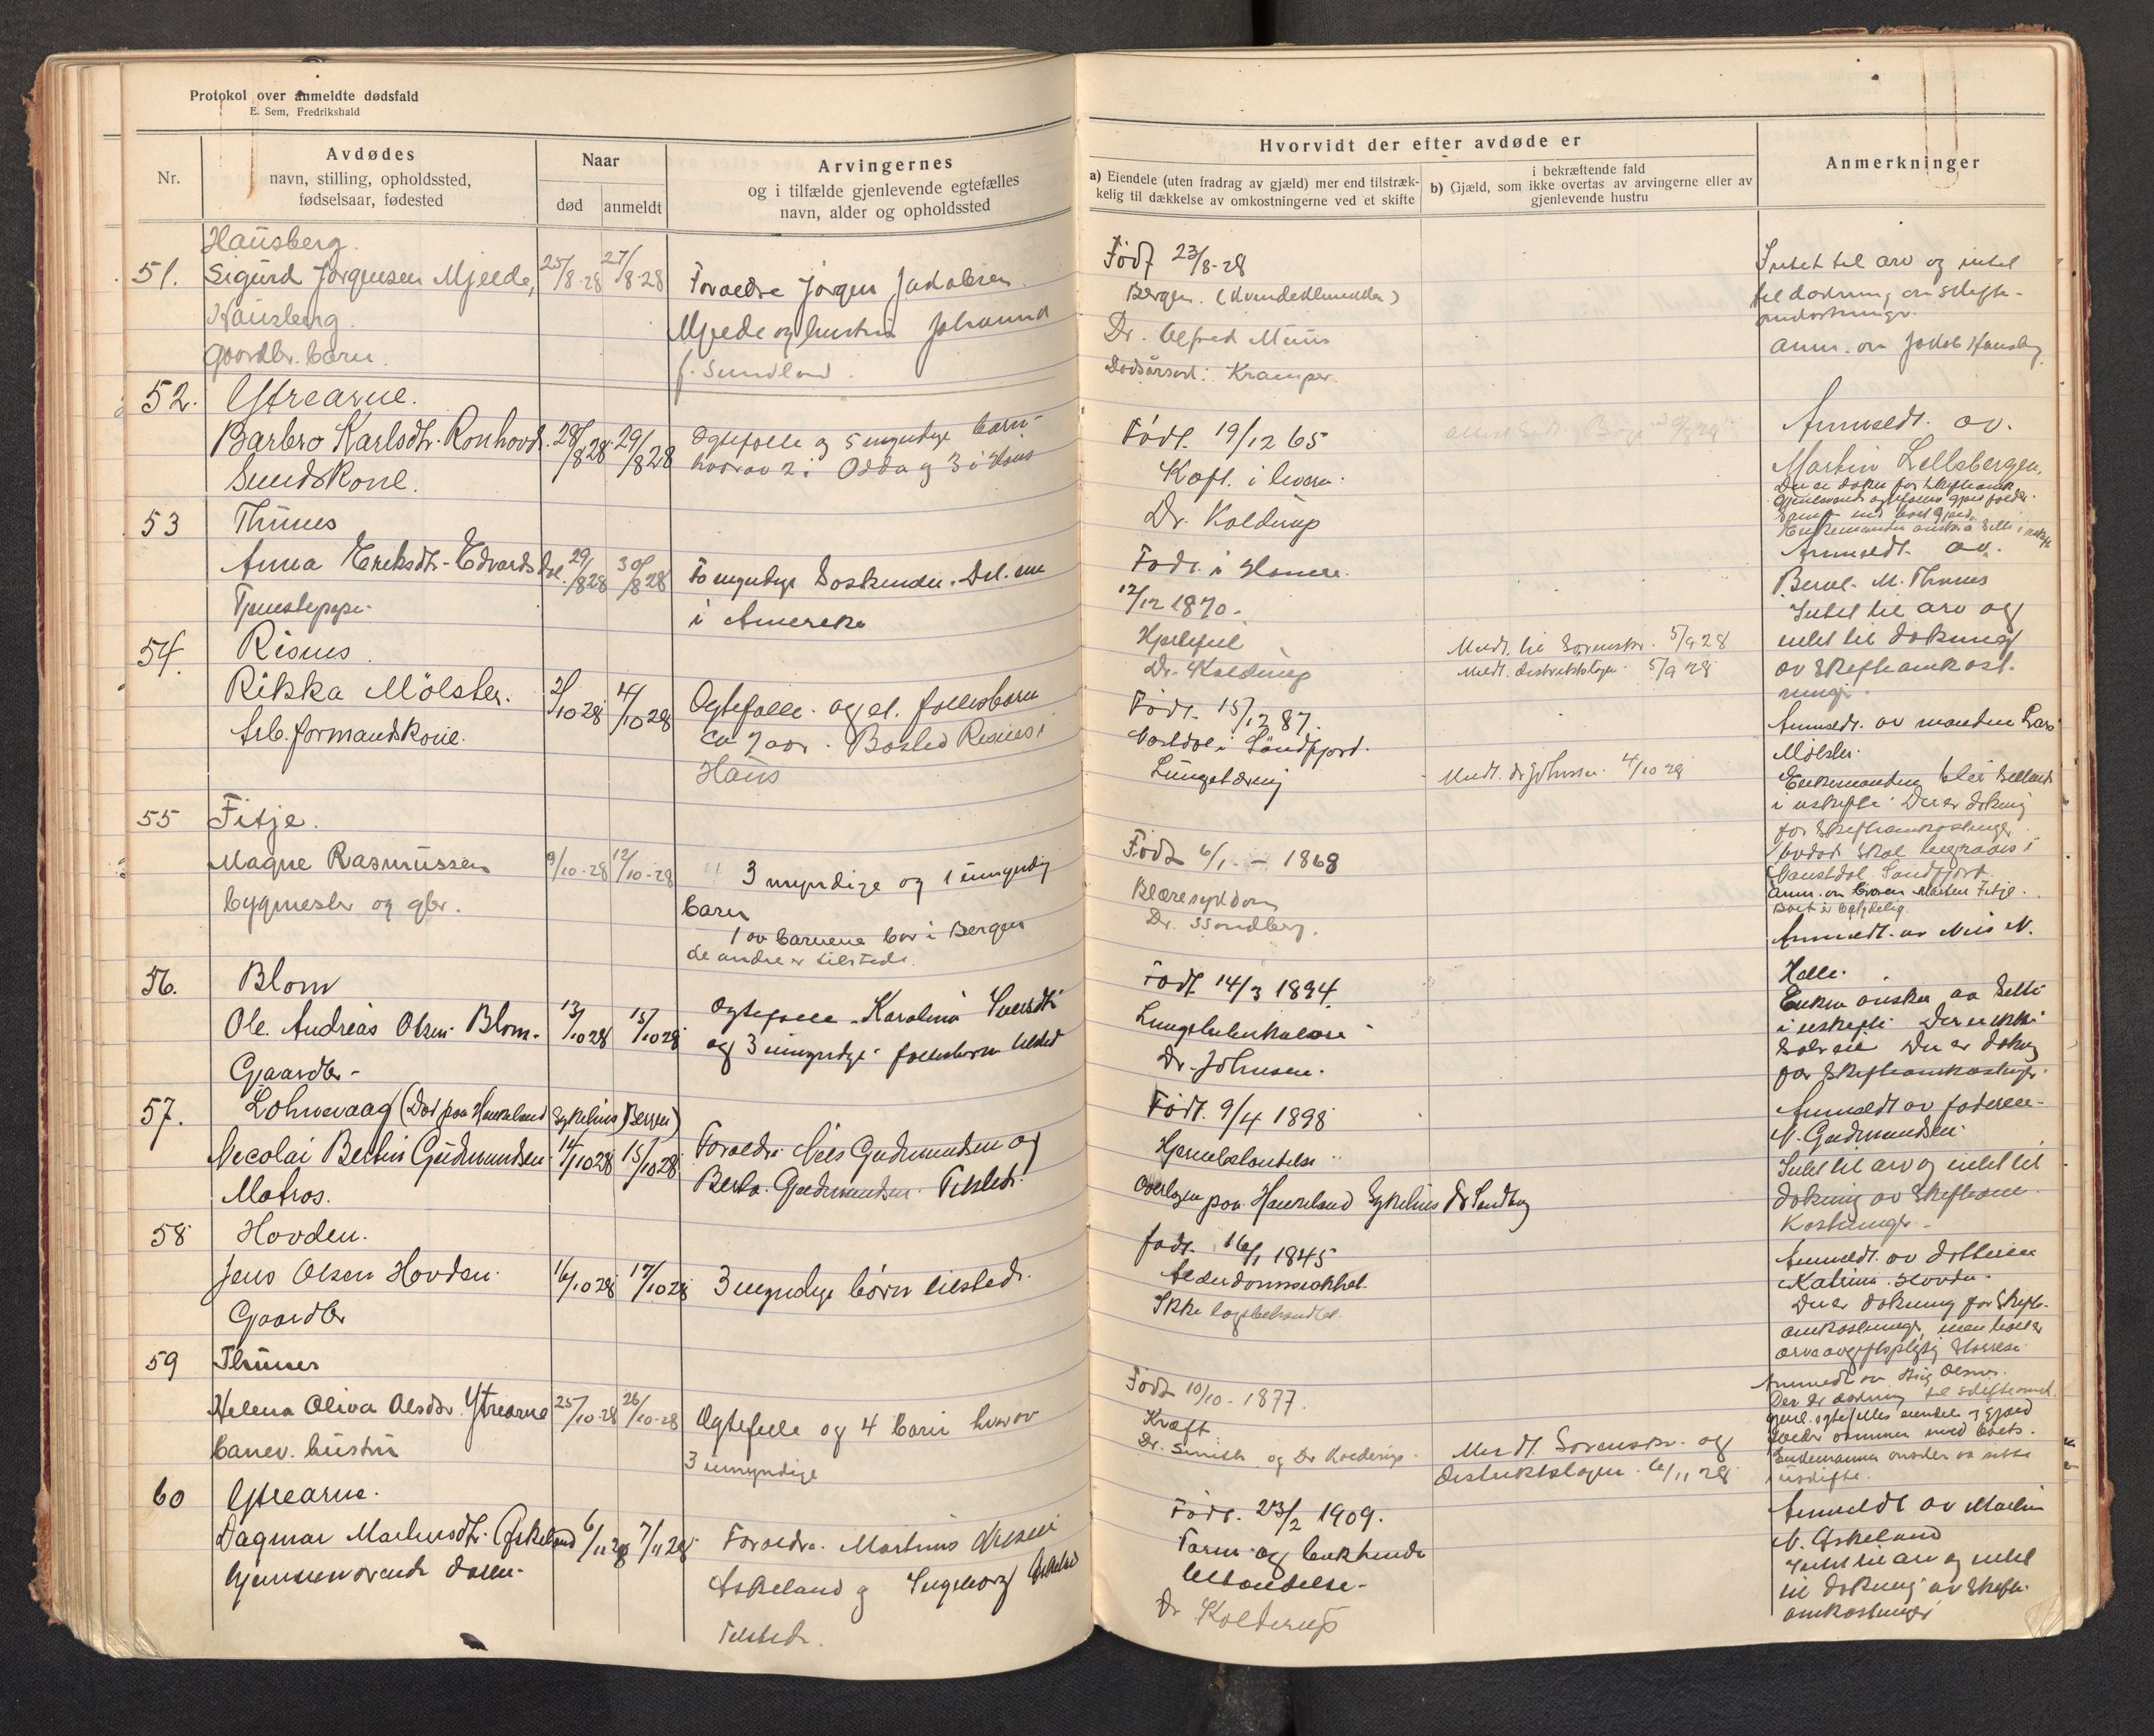 Protokol over anmeldte dødsfald
E. Sem, Fredrikshald
Nr.
Avdødes
navn, stilling, opholdssted,
fødselsaar, fødested
Naar
død
anmeldt
Arvingernes
og i tilfælde gjenlevende egtefælles
navn, alder og opholdssted
Hausberg.
51. Sigurd Jørgensen Mjelde, 25/8-28 27/8-28 Foraeldre Jørgen Jakobsen
Hausberg. Mjelde og hustru Johanna
Gaardbr. barn. f. Sundland.
52. Ytrearne.
Barbro Karlsdtr. Ronhovd. 28/8 28 29/8 28 Egtefælle og 5 myndige barn
Smedskone. hvorav 2 i Odda og 3 i Haus
53 Thunes
Anna Eriksdtr. Edvardsdal. 29/8 28 30/8 28 To myndige Søskende. Del. ene
Tjenestepige. i Amerika
54. Risnes
Rikka Mølster. 2/10 28 4/10 28 Egtefælle og et fællesbarn
Arb. formandskone. ca 7 aar. Bosted Risnes i
Haus
55 Fitje.
Magne Rasmussen 9/10-28 12/10-28 3 myndige og 1 umyndig
bygmester og gbr. barn
1 av barnene bor i Bergen
de andre er tilstede.
56. Blom
Ole Andreas Olsen Blom. 13/10 28 15/10 28 Egtefælle Karolina
Gaardbr. og 3 umyndige fællesbarn tilsted
57. Lohnevaag (Død paa Haukeland Sykehus Bergen)
Nicolai Bertin Gudmundsen 14/10 28 15/10 28 Foraeldre Nils Gudmundsen og
Matros. Berta Gudmundsen. Tilsted.
58 Hovden.
Jens Olsen Hovden. 16/10 28 17/10 28 3 myndige børn tilsted.
Gaardbr
59 Thunes
Helena Oliva Olsdtr. Ytrearne 25/10-28 26/10-28 Egtefelle og 4 barn hvorav
banev. hustru 3 umyndige
60 Ytrearne.
Dagmar Martinsdtr. Askeland 6/11 28 7/11 28 Foraeldre. Martinus Nilsen
Hjemmeværende datter. Askeland og Ingeborg Askeland
Tilsted.
Hvorvidt der efter avdøde er
a) Eiendele (uten fradrag av gjæld) mer end tilstræk-
kelig til dækkelse av omkostningerne ved et skifte
i bekræftende fald
b) Gjæld, som ikke overtas av arvingerne eller av
gjenlevende hustru
Anmerkninger
Født 23/8-28
Bergen. (Kvindeklinikken)
Dr. Alfred Muus
Dødsårsak: Kramper
Født. 19/12 65
Kræft. i leveren.
Dr. Kolderup
Født. i Hamre.
12/12 1870.
Hjertefeil
Dr. Kolderup
Født. 15/12 87.
i Søndfjord.
Lungetæring
Født 6/1 - 1868
Blæresykdom
Dr. Sandberg.
Født 14/3 1894.
Lungetuberkulose
Dr. Johnsen.
Født. 9/4 1898
Hjernebetændelse
Overlægen paa Haukeland Sykehus Dr Sandberg
født. 16/1 1845
Alderdomssvakhet.
Ikke lægebehandlet.
Født 10/10-1877.
Kræft
Dr. Smith og Dr Kolderup.
Født. 23/2 1909.
Tarm og bukhinde
betændelse.
Dr Kolderup
Medt. til Sorenskr. 5/9 28
Medt. distriktslægen 5/9 28
Medt. dr Johnsen. 4/10 28
Medt. Sorenskr. og
distriktslægen. 6/11 28
Intet til arv og intet
til dækning av skifte-
omkostninger.
anm. av Jakob Hausberg
Anmeldt. av.
Martin Lellebergen.
Der er dækn. for Skifteomk.
Enkemanden ønsker å sitte i uskifte
Anmeldt. av.
Bernt. M. Thunes
Intet til arv og
intet til dækning
av Skifteomkost-
ninger.
Anmeldt. av manden Lars
Mølster.
Enkemanden blir sittende
i uskifte. Der er dækning
for Skifteomkostninger.
Avdøde skal begraves i
Naustdal Sundfjord.
Anm. av broren Martin Fitje.
Anmeldt. av Nils N.
Halle.
Enken ønsker aa sitte
i uskifte. Der er ikke
særeie. Der er dækning
for Skifteomkostninger.
Anmeldt av faderen
N. Gudmundsen.
Intet til arv og intet til
dækning av Skifteom-
kostninger.
Anmeldt. av datteren
Katrina Hovden.
Der er dækning for Skifte-
omkostninger, men ikke av
arveavgiftspligtig Størrelse.
Der er dækning til skifteomk.
gjenl. egtefelles eiendele og gjæld
holder sammen med boets.
Enkemannen ønsker aa sitte
i uskifte.
Anmeldt av Martin
N. Askeland
Intet til arv og intet
til dækning av Skifte-
omkostninger